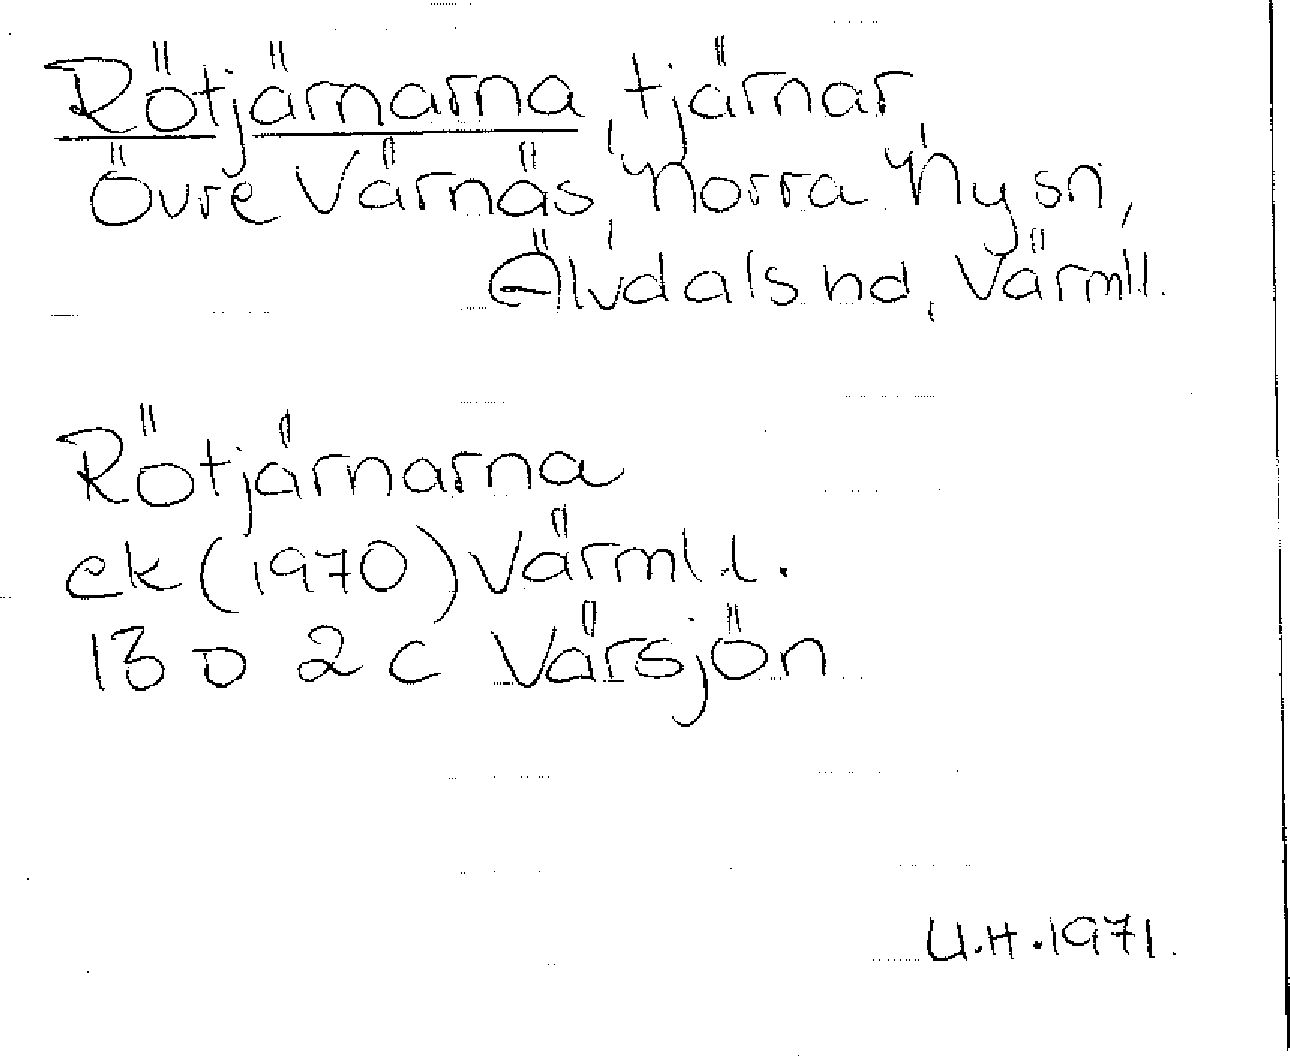 Rötjärnarna, tjärnar,
Övre Värnäs, Norra Ny sn,
Älvdals hd, Värml.
Rötjärnarna
ek (1970) Värml.
13 D 2 c Värsjön
U.H.1971.